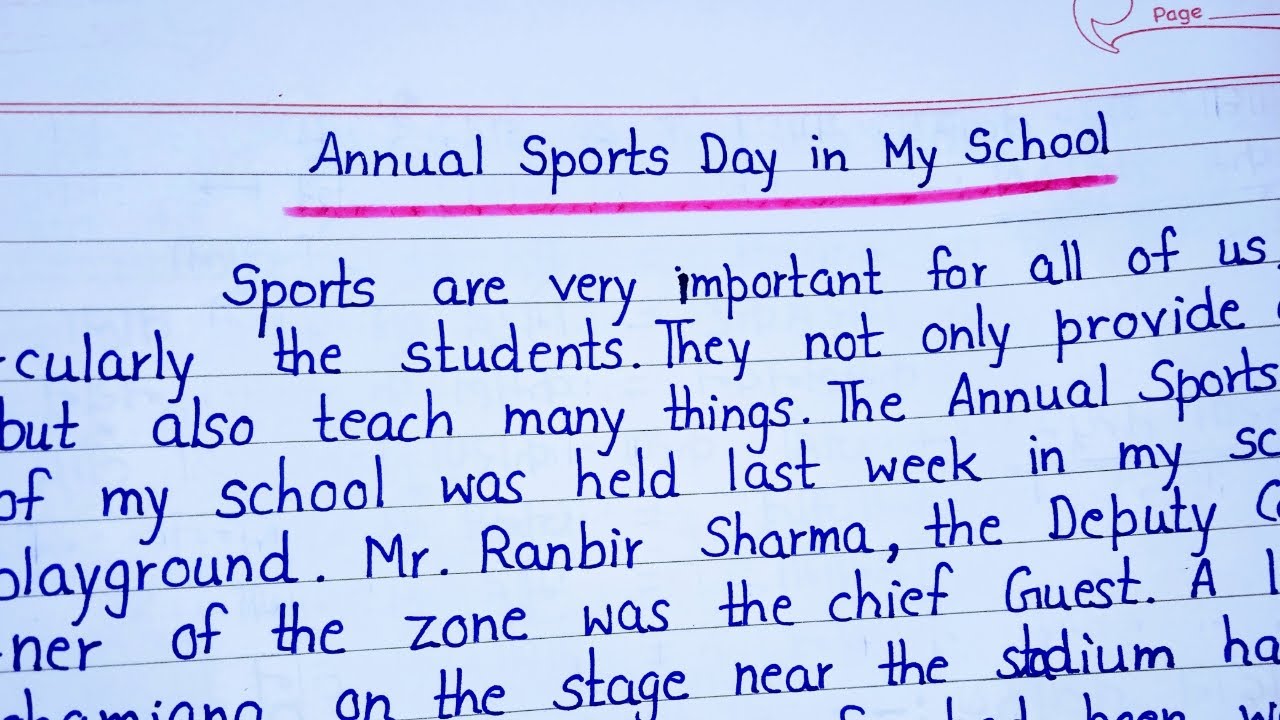 Page
Annual Sports Day in My School
Sports are very important for all of us
cularly the students. They not only provide
but also teach many things. The Annual Sports
of my school was held last week in my sc
playground. Mr. Ranbir Sharma, the Deputy
ner of the zone was the chief Guest. A
on the stage near the stadium ha